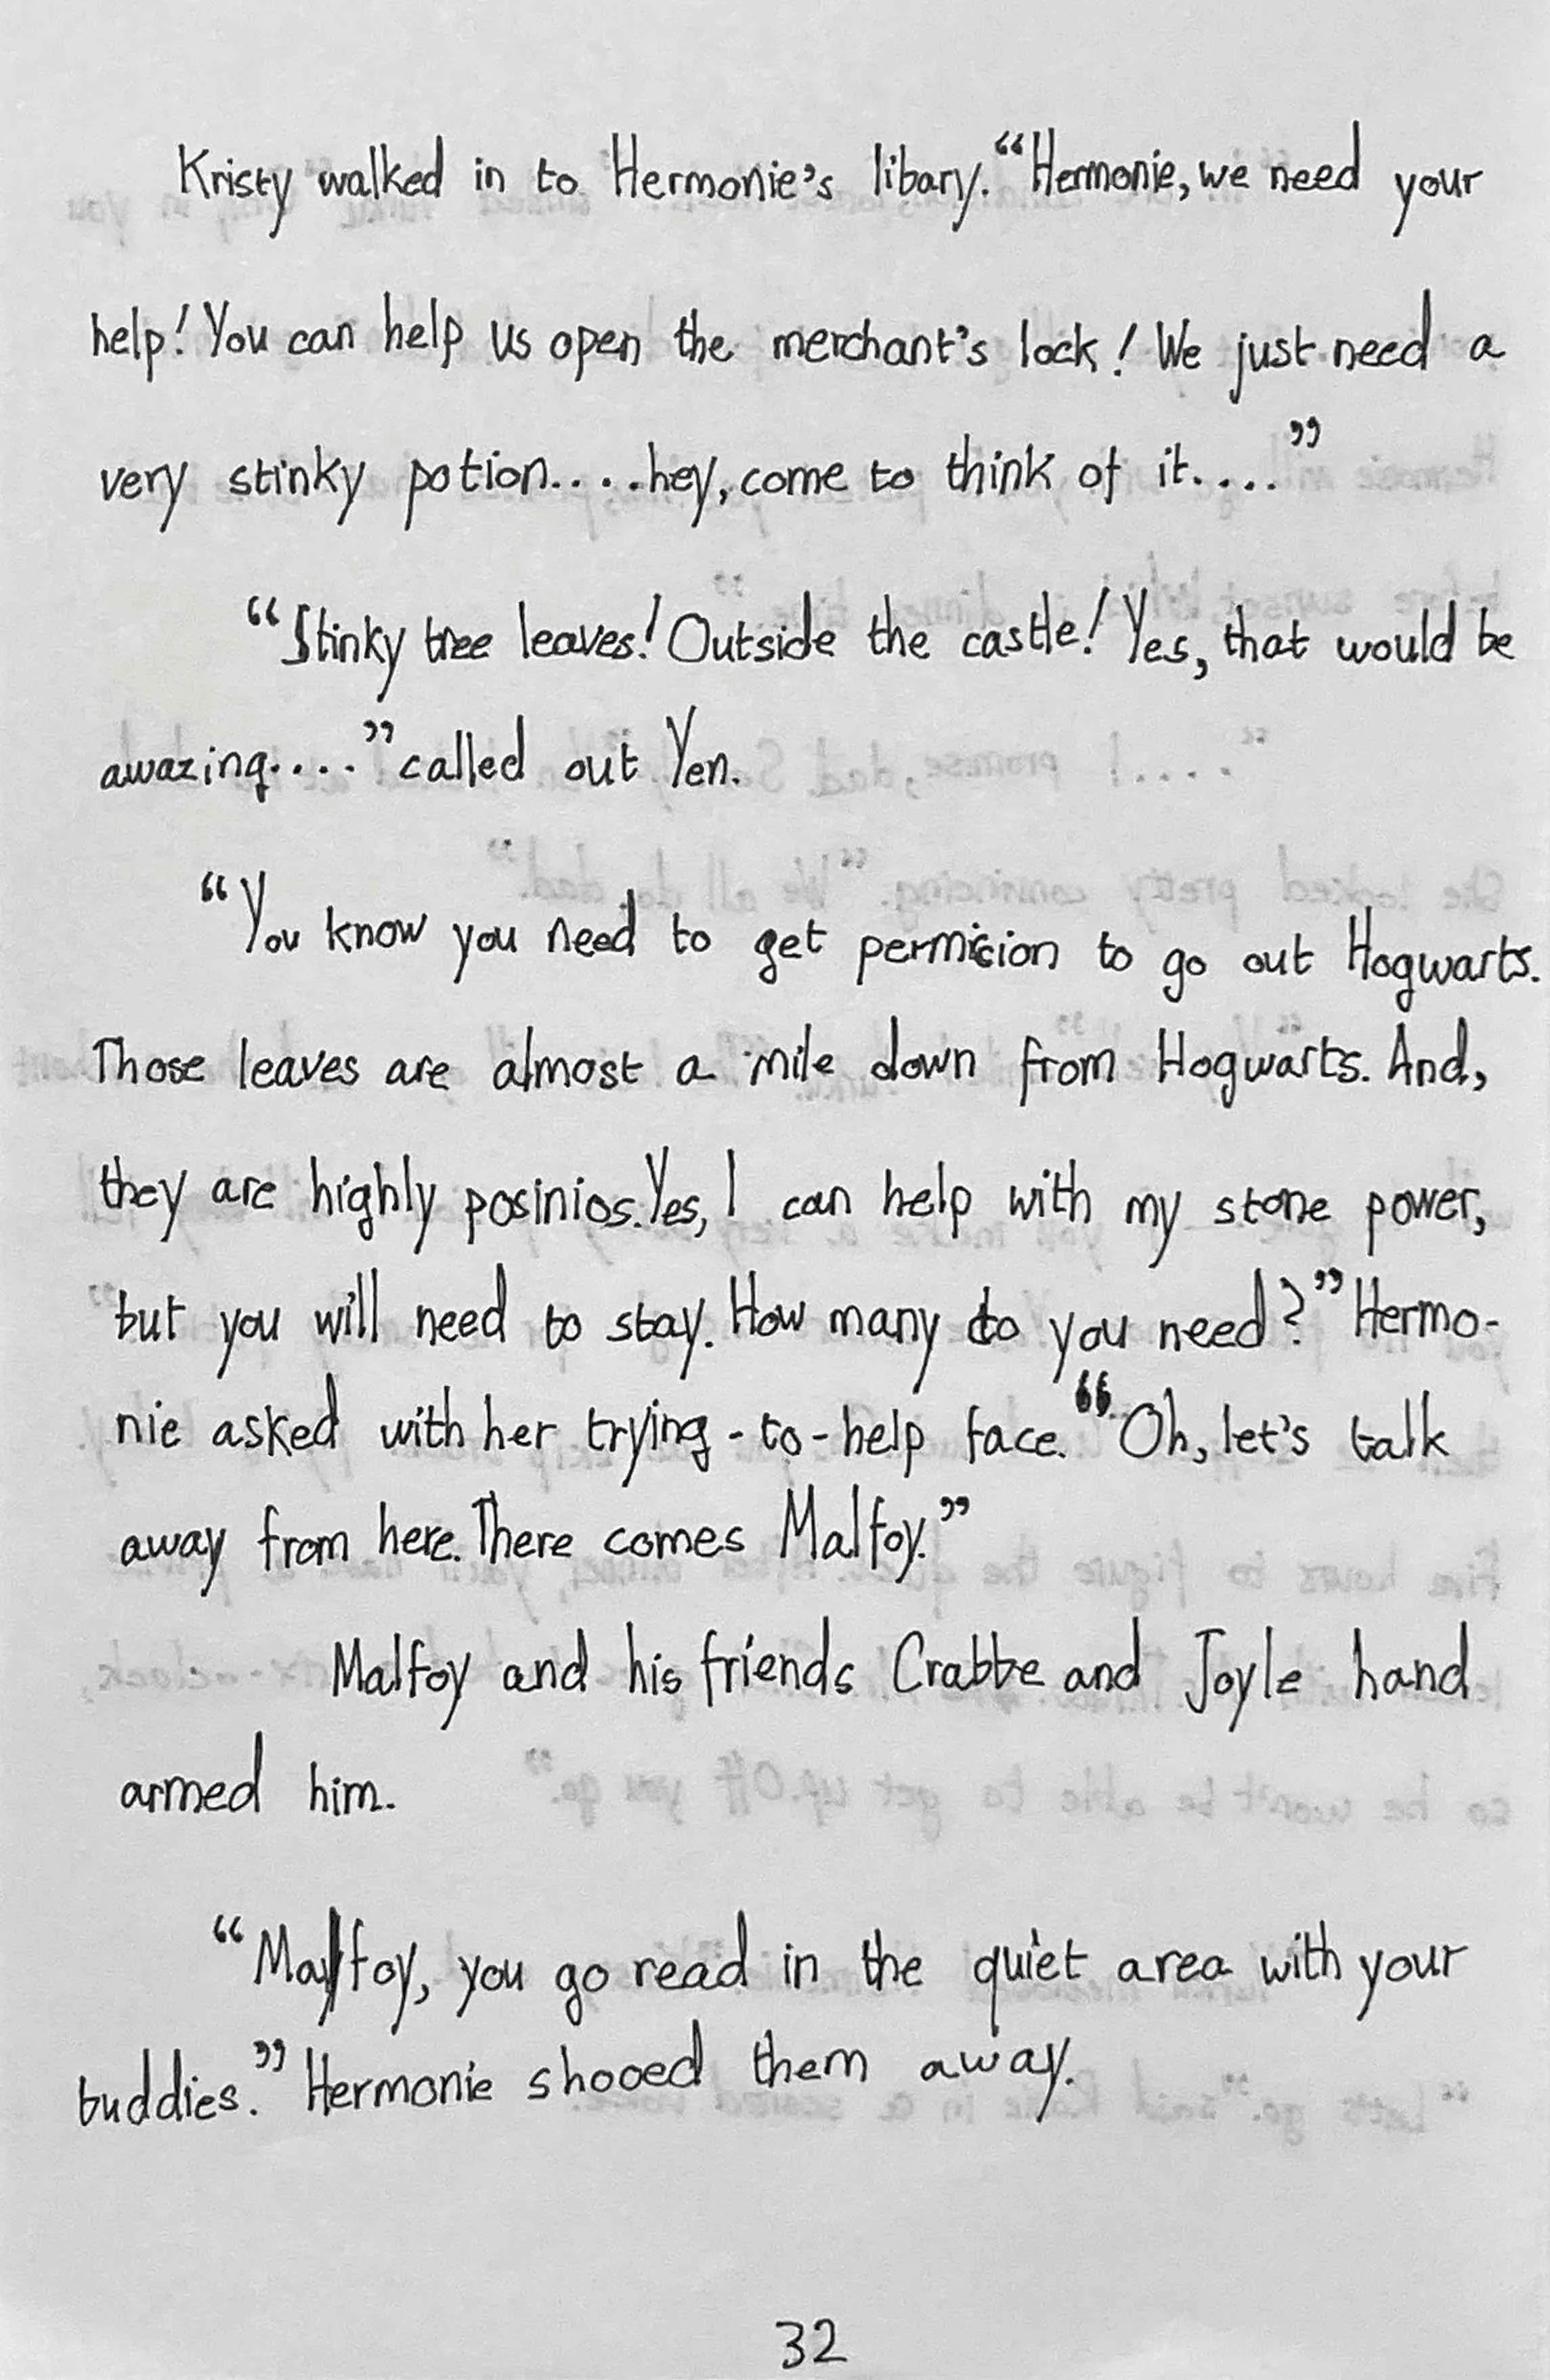 Kristy walked in to Hermonie's libary. “Hermonie, we need your
help! You can help us open the merchant's lock! We just need a
very stinky potion.....hey, come to think of it....”
“Stinky tree leaves! Outside the castle! Yes, that would be
awazing....” called out Yen.
“You know you need to get permicion to go out Hogwarts.
Those leaves are almost a mile down from Hogwarts. And,
they are highly posinios. Yes, I can help with my stone power,
but you will need to stay. How many do you need?” Hermo-
nie asked with her trying-to-help face. “Oh, let's talk
away from here. There comes Malfoy.”
Malfoy and his friends Crabbe and Joyle hand
armed him.
“Malfoy, you go read in the quiet area with your
buddies.” Hermonie shooed them away.
32